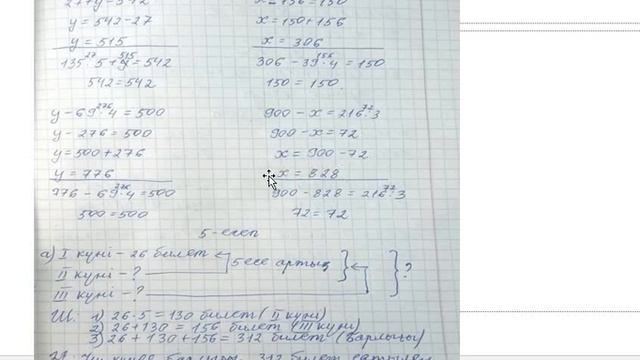 y = 542-27
x = 150+156
y = 515
x = 306
135:5+515=542
306-39·4=150
542=542
150=150.
y-69·4=500
900-x=216:3
y-276=500
900-x=72
y=500+276
x=900-72
y=776
x=828
776-69·4=500
900-828=216:3
500=500
72=72
5-есеп
а) I күні - 26 билет
5 есе артық
II күні - ?
?
III күні - ?
Ш: 1) 26·5=130 билет (II күні)
2) 26+130=156 билет (III күні)
3) 26+130+156=312 билет (барлығы)
312 билет